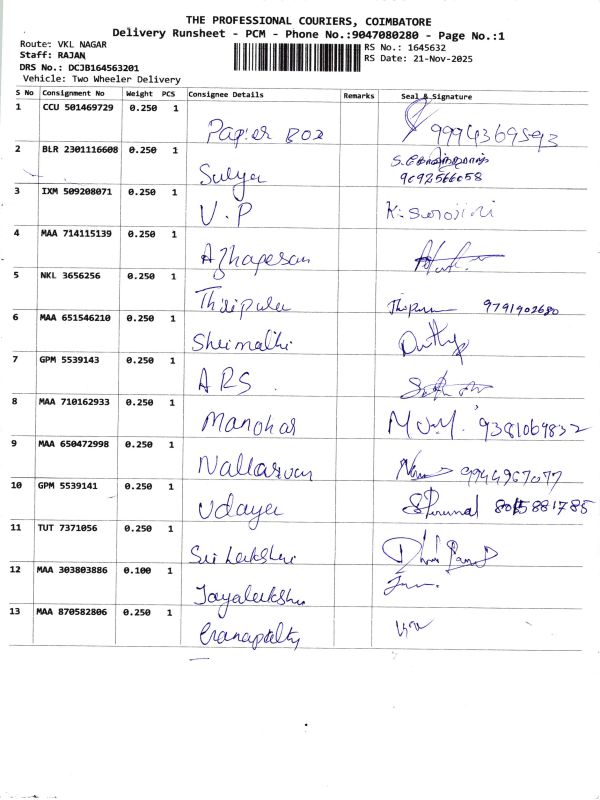 THE PROFESSIONAL COURIERS, COIMBATORE
Delivery Runsheet - PCM - Phone No.:9047080280 - Page No.:1
Route: VKL NAGAR
Staff: RAJAN
DRS No.: DCJB164563201
Vehicle: Two Wheeler Delivery
RS No.: 1645632
RS Date: 21-Nov-2025
S No Consignment No Weight PCS Consignee Details Remarks Seal & Signature
1 CCU 501469729 0.250 1 Paper Box 9994369593
2 BLR 2301116608 0.250 1 Sulya 9092566058
3 IXM 509208071 0.250 1 V.P K. Sarojini
4 MAA 714115139 0.250 1 Azhagesan
5 NKL 3656256 0.250 1 9791902680
6 MAA 651546210 0.250 1 Shrimathi
7 GPM 5539143 0.250 1 ARS
8 MAA 710162933 0.250 1 Manohar 9381069832
9 MAA 650472998 0.250 1 9944967077
10 GPM 5539141 0.250 1 Udaya S Perumal 8015881785
11 TUT 7371056 0.250 1 Sri Lakshmi
12 MAA 303803886 0.100 1
13 MAA 870582806 0.250 1